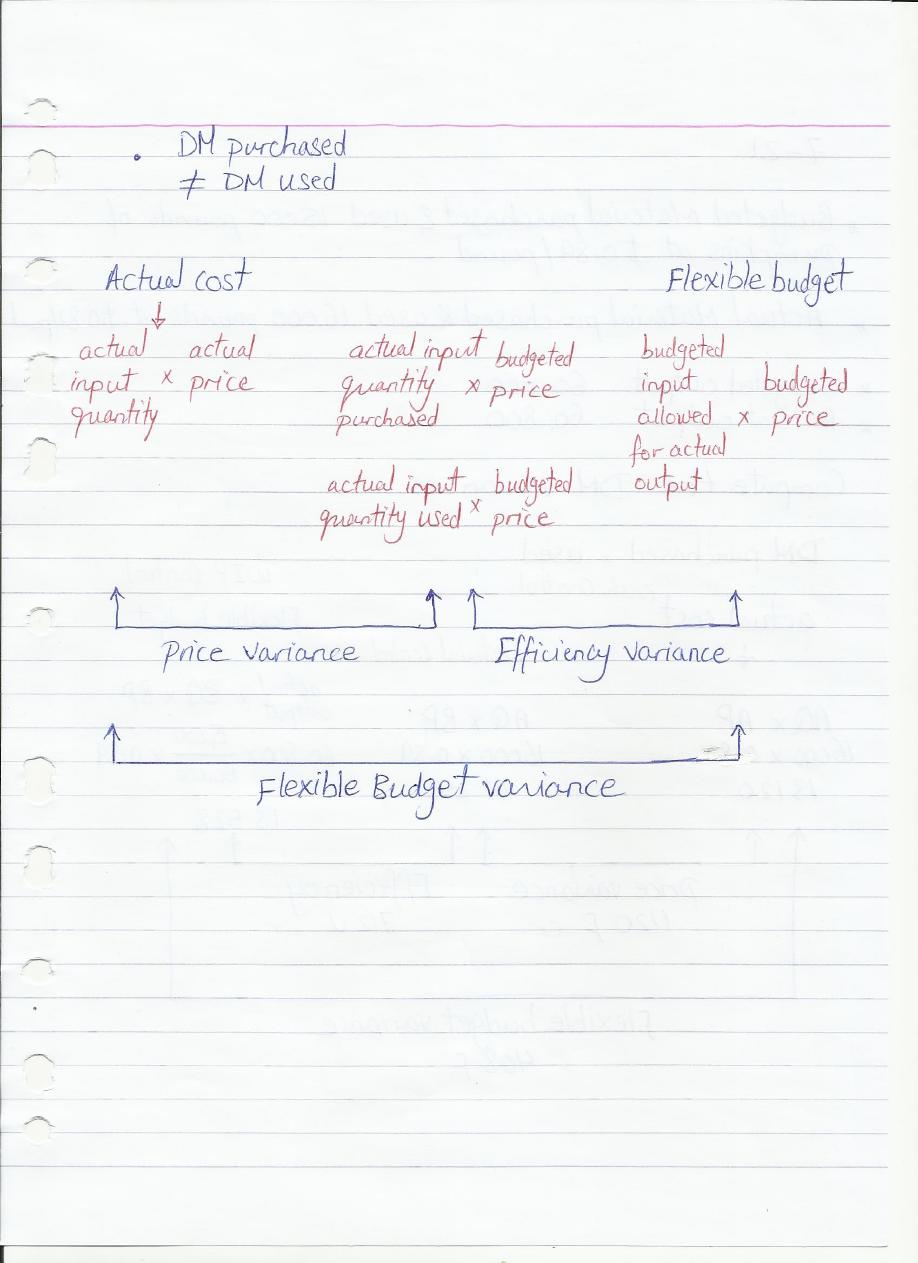 . DM purchased
≠ DM used
Actual cost
Flexible budget
↓
actual input quantity × actual price
actual input quantity purchased × budgeted price
actual input quantity used × budgeted price
budgeted input allowed for actual output × budgeted price
Price variance
Efficiency variance
Flexible Budget variance